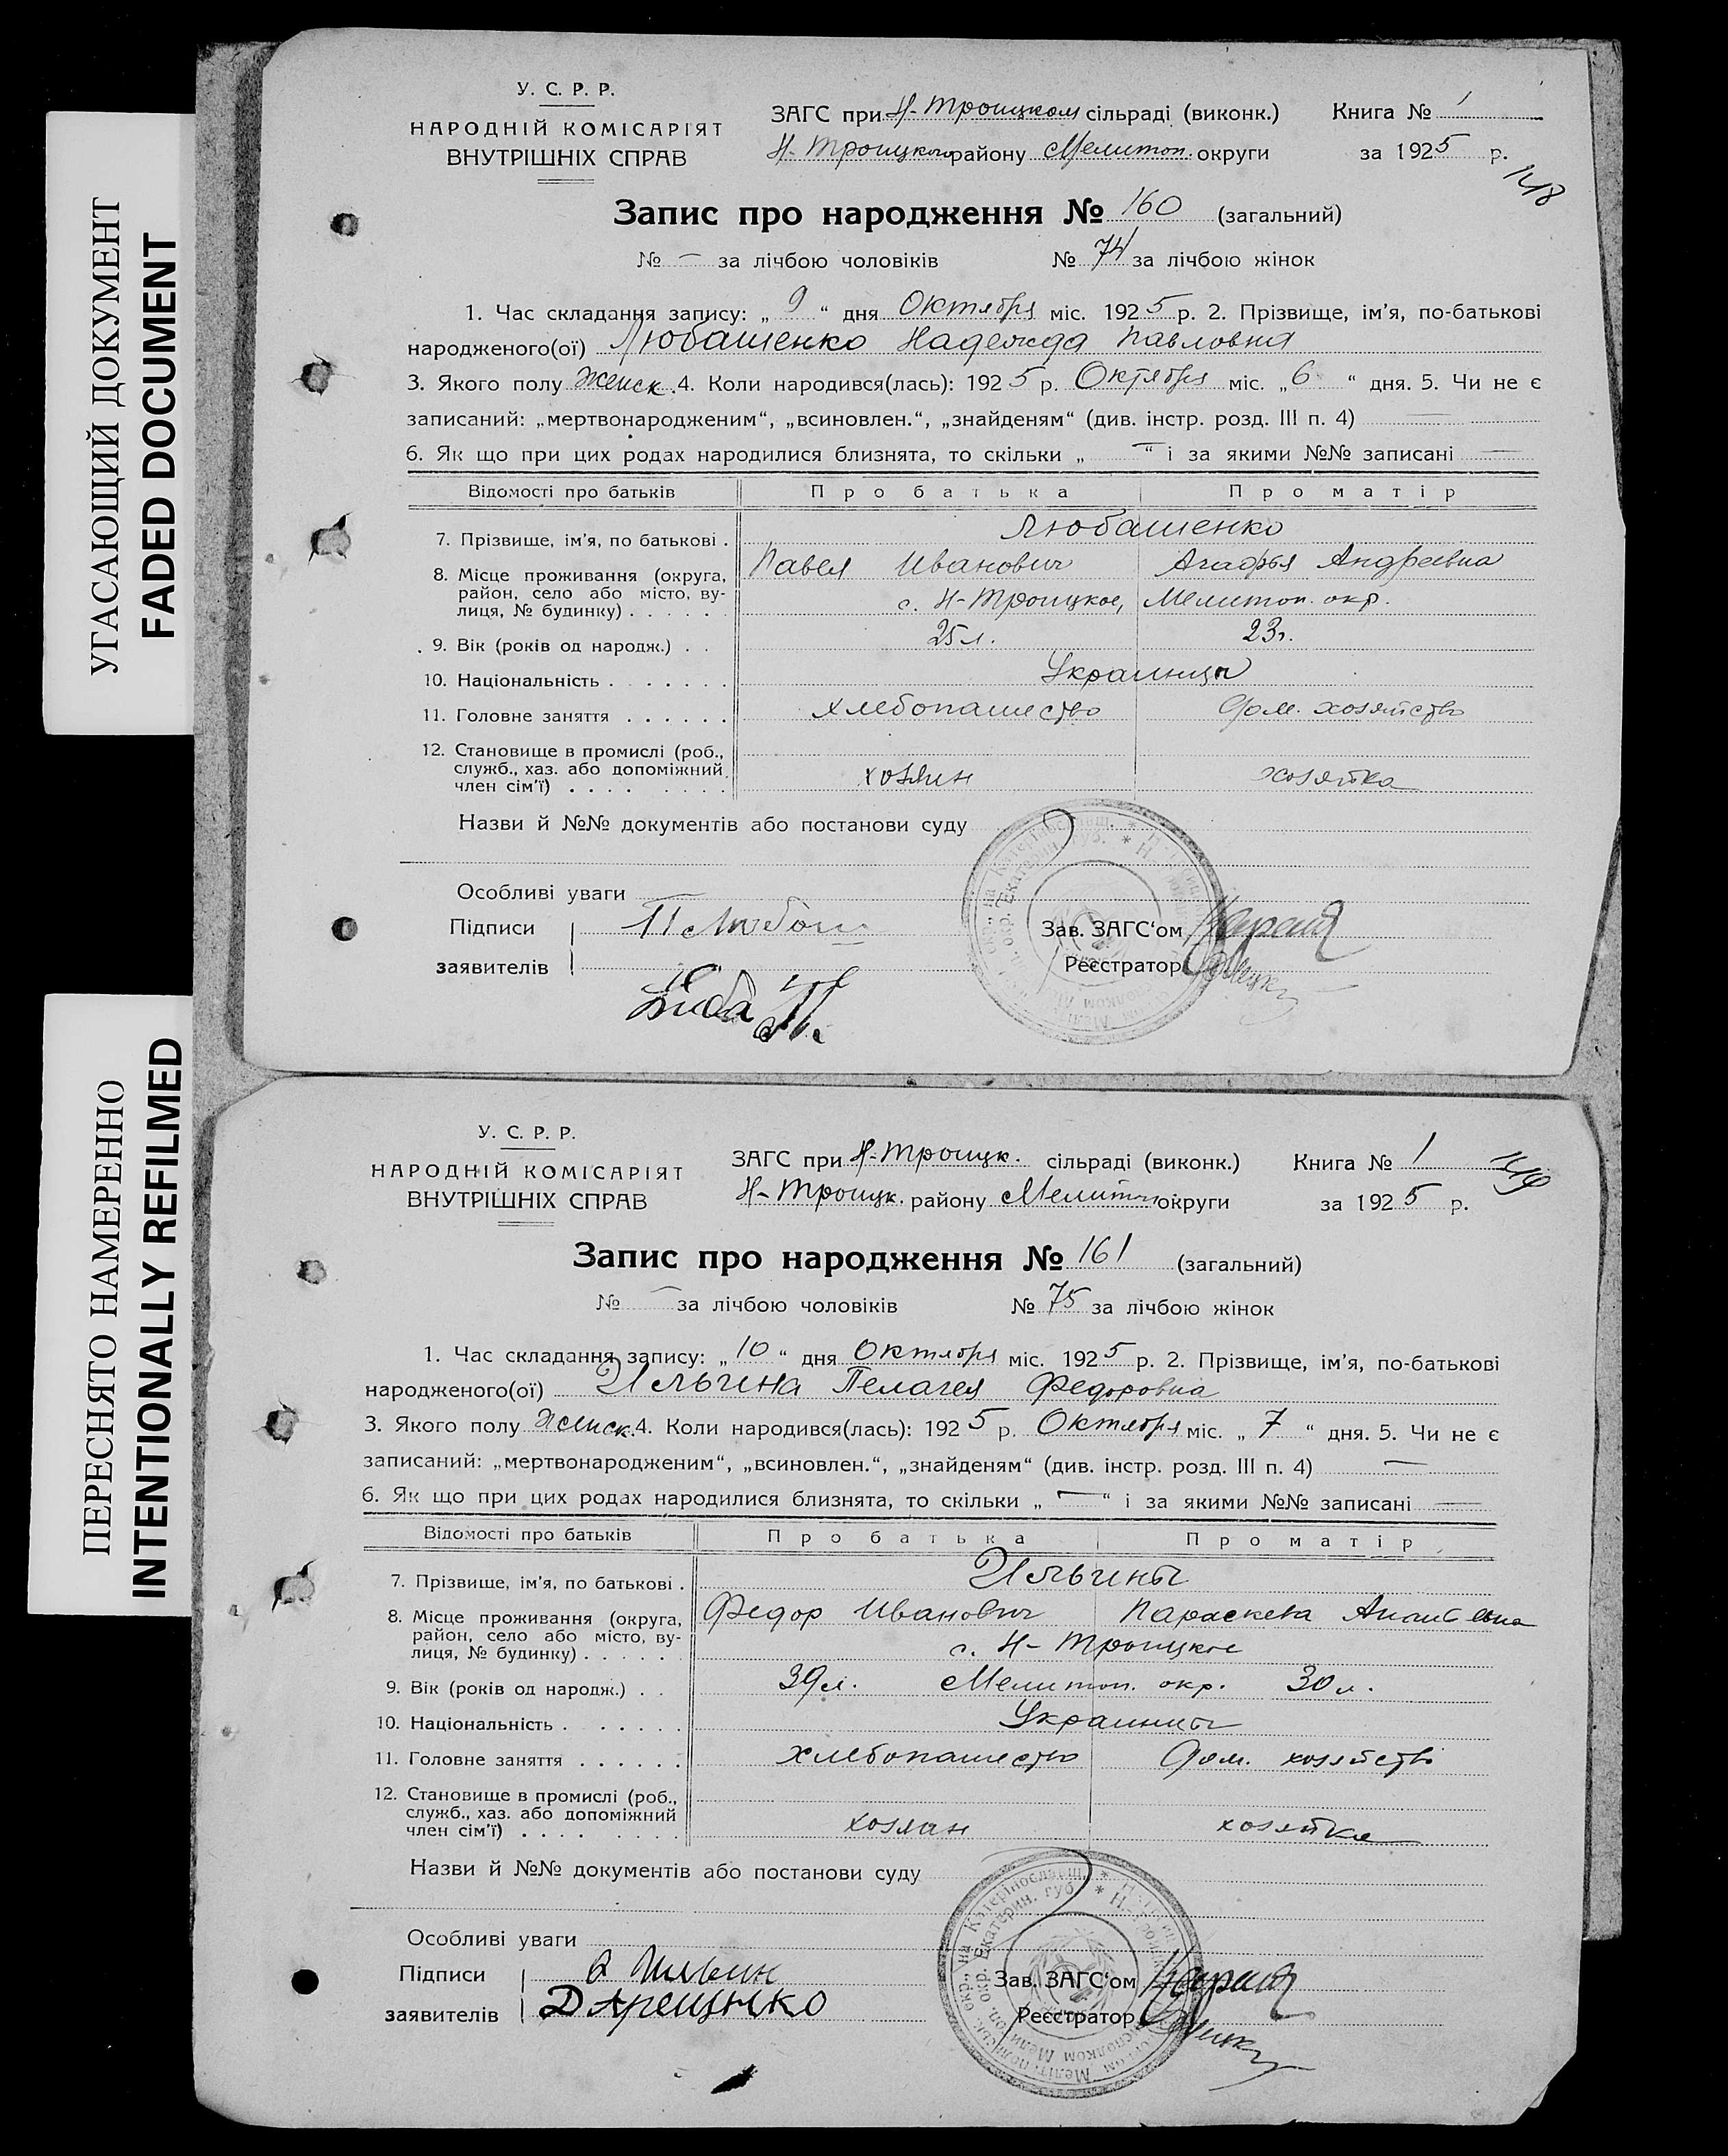 УГАСАЮЩИЙ ДОКУМЕНТ
FADED DOCUMENT
У. С. Р. Р.
НАРОДНІЙ КОМІСАРІЯТ
ВНУТРІШНІХ СПРАВ
ЗАГС при Н-Троицком сільраді (виконк.) Книга № 1
Н-Троицком району Мелитоп. округи за 1925 р.
148
Запис про народження № 160 (загальний)
№ — за лічбою чоловіків № 74 за лічбою жінок
1. Час складання запису: „ 9 “ дня Октября міс. 1925 р. 2. Прізвище, ім'я, по-батькові
народженого(ої) Любашенко Надежда Павловна
3. Якого полу Женск. 4. Коли народився(лась): 1925 р. Октября міс. „ 6 “ дня. 5. Чи не є
записаний: „мертвонародженим“, „всиновлен.“, „знайденям“ (див. інстр. розд. III п. 4) —
6. Як що при цих родах народилися близнята, то скільки „ — “ і за якими №№ записані —
Відомості про батьків Про батька Про матір
7. Прізвище, ім'я, по батькові . Любашенко
Павел Иванович Агафья Андреевна
8. Місце проживання (округа, район, село або місто, вулиця, № будинку) . . . . . с. Н-Троицкое, Мелитоп. окр.
9. Вік (років од народж.) . . 25 л. 23 г.
10. Національність . . . . . . . Украинцы
11. Головне заняття . . . . . . хлебопашество дом. хозяйство
12. Становище в промислі (роб., служб., хаз. або допоміжний член сім'ї) . . . . . . . . хозяин хозяйка
Назви й №№ документів або постанови суду
Особливі уваги
Підписи
заявителів
Зав. ЗАГС'ом
Реєстратор
ПЕРЕСНЯТО НАМЕРЕННО
INTENTIONALLY REFILMED
У. С. Р. Р.
НАРОДНІЙ КОМІСАРІЯТ
ВНУТРІШНІХ СПРАВ
ЗАГС при Н-Троицк. сільраді (виконк.) Книга № 1
Н-Троицк. району Мелитоп округи за 1925 р.
149
Запис про народження № 161 (загальний)
№ — за лічбою чоловіків № 75 за лічбою жінок
1. Час складання запису: „ 10 “ дня Октября міс. 1925 р. 2. Прізвище, ім'я, по-батькові
народженого(ої) Ильина Пелагея Федоровна
3. Якого полу Женск. 4. Коли народився(лась): 1925 р. Октября міс. „ 7 “ дня. 5. Чи не є
записаний: „мертвонародженим“, „всиновлен.“, „знайденям“ (див. інстр. розд. III п. 4) —
6. Як що при цих родах народилися близнята, то скільки „ — “ і за якими №№ записані —
Відомості про батьків Про батька Про матір
7. Прізвище, ім'я, по батькові . Ильины
Федор Иванович Параскева
8. Місце проживання (округа, район, село або місто, вулиця, № будинку) . . . . . с. Н-Троицкое
9. Вік (років од народж.) . . 39 л. Мелитоп. окр. 30 л.
10. Національність . . . . . . . Украинцы
11. Головне заняття . . . . . . хлебопашество дом. хозяйство
12. Становище в промислі (роб., служб., хаз. або допоміжний член сім'ї) . . . . . . . . хозяин хозяйка
Назви й №№ документів або постанови суду
Особливі уваги
Підписи Ильин
заявителів
Зав. ЗАГС'ом
Реєстратор